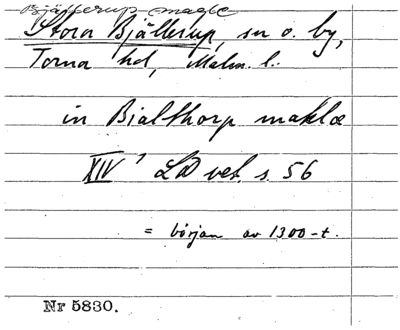 Bjällerup magle
Stora Bjällerup, sn o. by,
Torna hd, Malm. l.
in Bialthorp maklæ
XIV' LD vet. s. 56
= början av 1300-t.
Nr 5830.